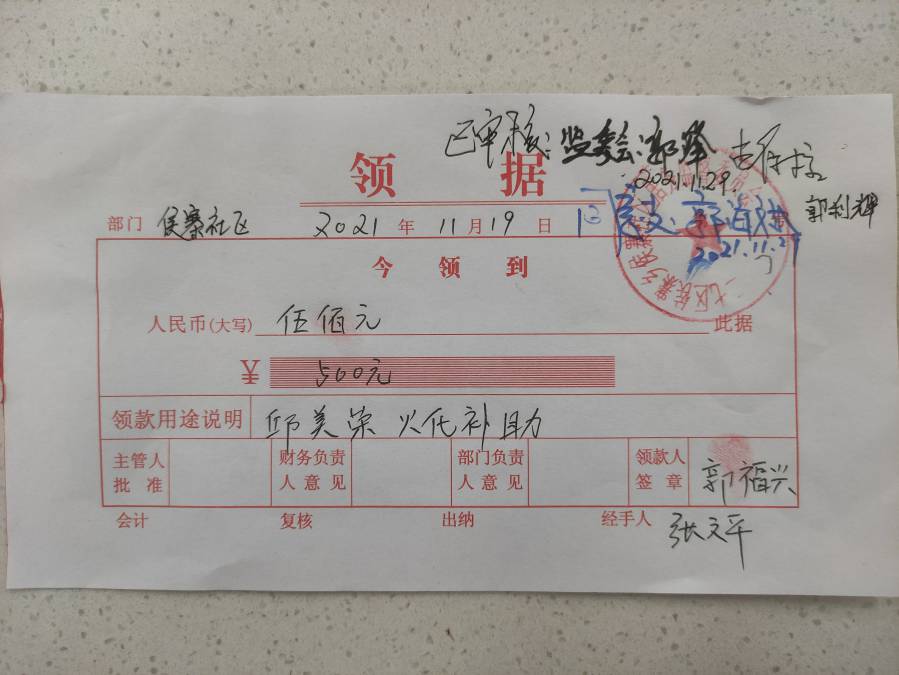 已审核:监委会:郭峰
2021.11.29
郭利辉
领 据
部门 侯寨社区 2021 年 11 月 19 日
2021.11.2
今 领 到
人民币(大写) 伍佰元 此据
¥ 500元
领款用途说明 邱美荣 火化补助
主管人批准 财务负责人意见 部门负责人意见 领款人签章 郭福兴
会计 复核 出纳 经手人 张文平